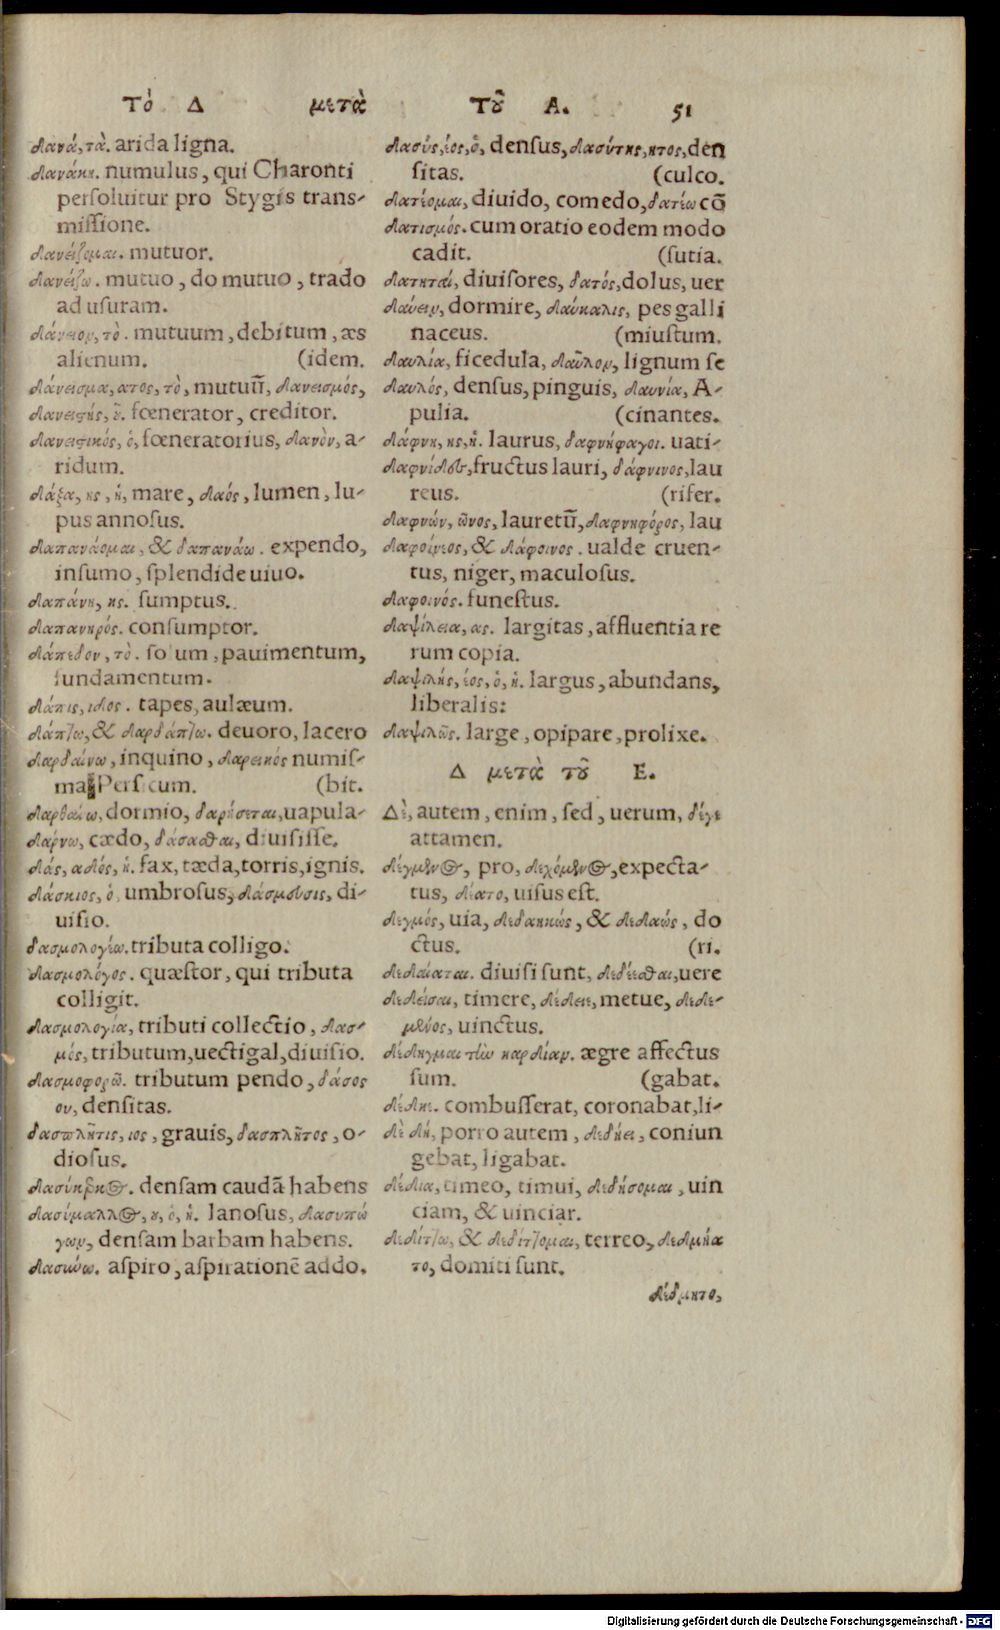 Τὸ Δ μετὰ Τοῦ Α. 51
δανά, τὰ. arida ligna.
δανάκη. numulus, qui Charonti
persoluitur pro Stygis trans-
missione.
δανείζομαι. mutuor.
δανείζω. mutuo, do mutuo, trado
ad usuram.
δάνειον, τὸ. mutuum, debitum, æs
alienum. (idem.
δάνεισμα, ατος, τὸ, mutuũ, δανεισμός,
δανειστής, οῦ. fœnerator, creditor.
δανειστικός, ὁ, fœneratorius, δανὸν, a-
ridum.
δάξα, ης, ἡ, mare, δαός, lumen, lu-
pus annosus.
δαπανάομαι, & δαπανάω. expendo,
insumo, splendide uiuo.
δαπάνη, ης. sumptus.
δαπανηρός. consumptor.
δάπεδον, τὸ. so um, pauimentum,
fundamentum.
δάπις, ιδος. tapes, aulæum.
δάπτω, & δαρδάπτω. deuoro, lacero
δαρδαίνω, inquino, δαρεικός numis-
ma Persicum. (bit.
δαρθαίω, dormio, δαρήσεται, uapula-
δάρνω, cædo, δάσασθαι, diuisisse.
δάς, αδός, ἡ. fax, tæda, torris, ignis.
δάσκιος, ὁ, umbrosus, δάσμευσις, di-
uisio.
δασμολογέω. tributa colligo.
δασμολόγος. quæstor, qui tributa
colligit.
δασμολογία, tributi collectio, δασ-
μός, tributum, uectigal, diuisio.
δασμοφορῶ. tributum pendo, δάσος
ου, densitas.
δασπλῆτις, ιος, grauis, δασπλῆτος, o-
diosus.
δασύκερκος. densam caudã habens
δασύμαλλος, ου, ὁ, ἡ. lanosus, δασυπώ
γων, densam barbam habens.
δασύνω. aspiro, aspirationẽ addo.
δασύς, έος, ὁ, densus, δασύτης, ητος, den
sitas. (culco.
δατέομαι, diuido, comedo, δατέω cõ
δατισμός. cum oratio eodem modo
cadit. (sutia.
δατηταί, diuisores, δατός, dolus, uer
δαύειν, dormire, δαύκαλις, pes galli
naceus. (miustum.
δαυλία, ficedula, δαῦλον, lignum se
δαυλός, densus, pinguis, δαυνία, A-
pulia. (cinantes.
δάφνη, ης, ἡ. laurus, δαφνήφαγοι. uati-
δαφνίδες, fructus lauri, δάφνινος, lau
reus. (rifer.
δαφνών, ῶνος, lauretũ, δαφνηφόρος, lau
δαφοίνεος, & δάφοινος. ualde cruen-
tus, niger, maculosus.
δαφοινός. funestus.
δαψίλεια, ας. largitas, affluentia re
rum copia.
δαψιλής, έος, ὁ, ἡ. largus, abundans,
liberalis:
δαψιλῶς. large, opipare, prolixe.
Δ μετὰ τοῦ Ε.
Δὲ, autem, enim, sed, uerum, δέγε
attamen.
δέγμενος, pro, δεχόμενος, expecta-
tus, δέατο, uisus est.
δεγμός, uia, δεδαηκώς, & δεδαώς, do
ctus. (ri.
δεδαίαται. diuisi sunt, δεδέεσθαι, uere
δεδεῖσαι, timere, δέδειε, metue, δεδε-
μένος, uinctus.
δέδηγμαι τὴν καρδίαν. ægre affectus
sum. (gabat.
δέδηε. combusserat, coronabat, li-
δὲ δή, porro autem, δεδήει, coniun
gebat, ligabat.
δέδια, timeo, timui, δεδήσομαι, uin
ciam, & uinciar.
δεδίττω, & δεδίττομαι, terreo, δεδμήα
το, domiti sunt.
δέδμητο,
Digitalisierung gefördert durch die Deutsche Forschungsgemeinschaft - DFG